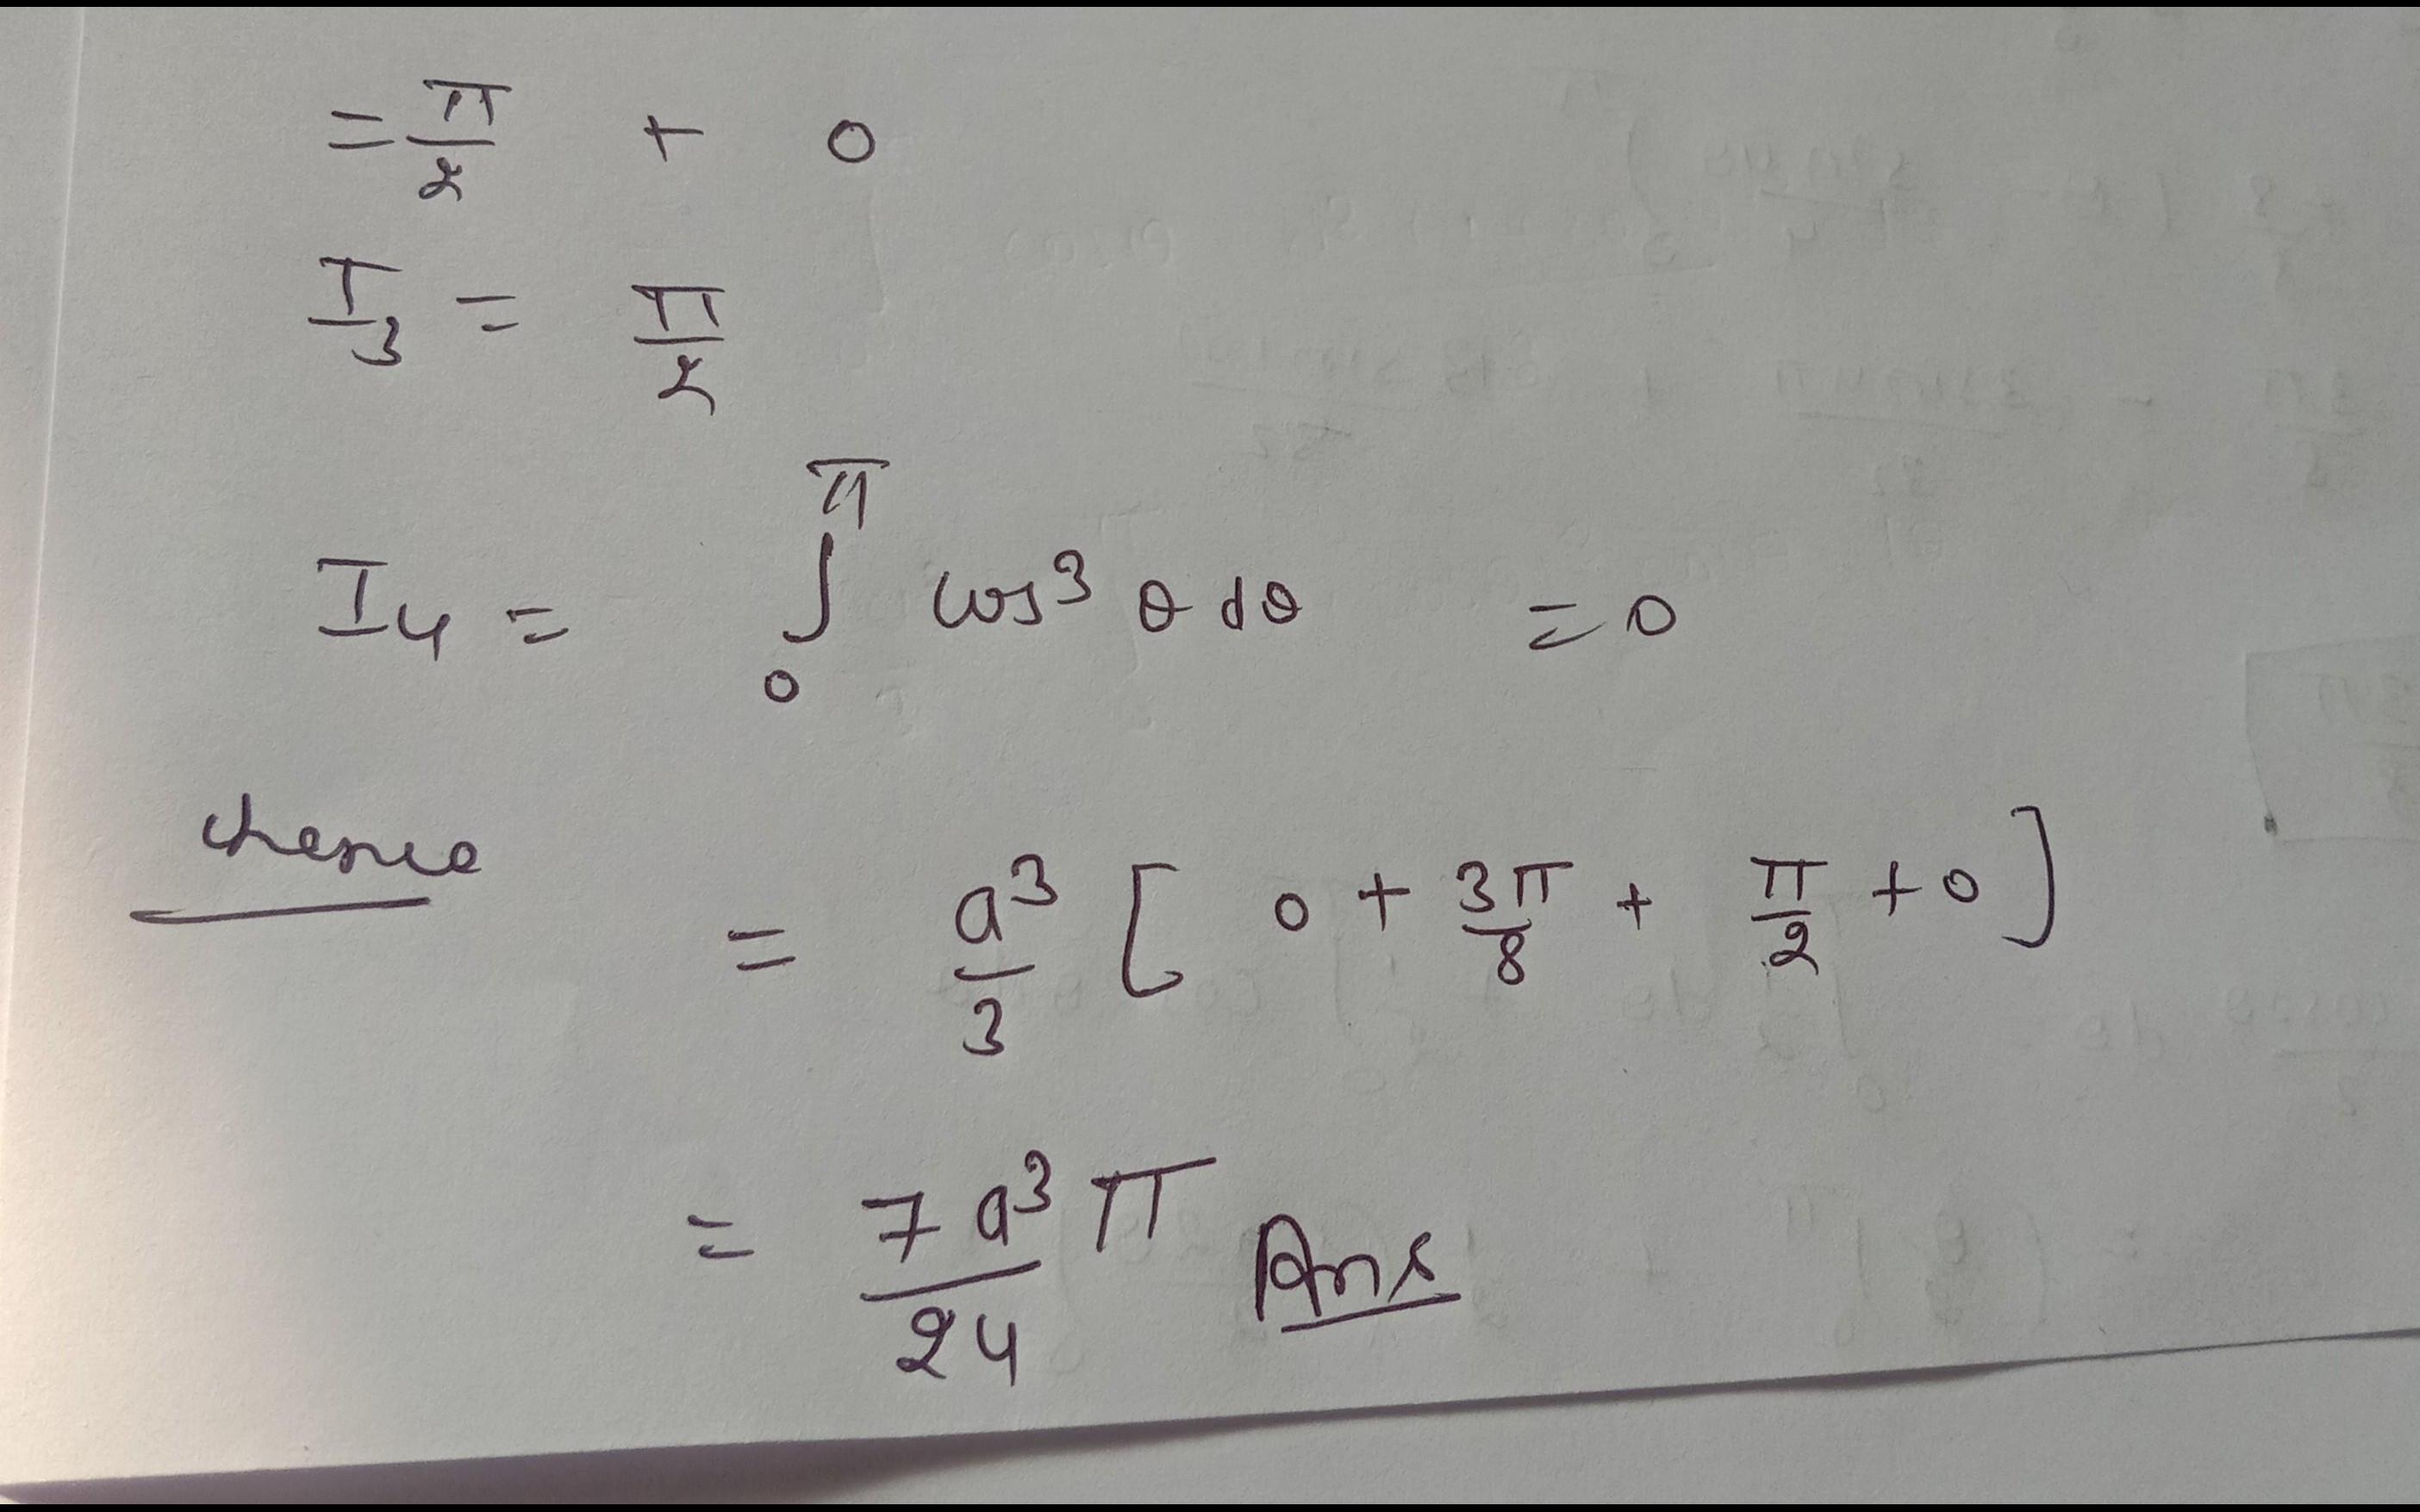 = π/2 + 0
I₃ = π/2
I₄ = ∫₀^π cos³ θ dθ = 0
hence
= a³/3 [ 0 + 3π/8 + π/2 + 0 ]
= 7a³π/24 Ans